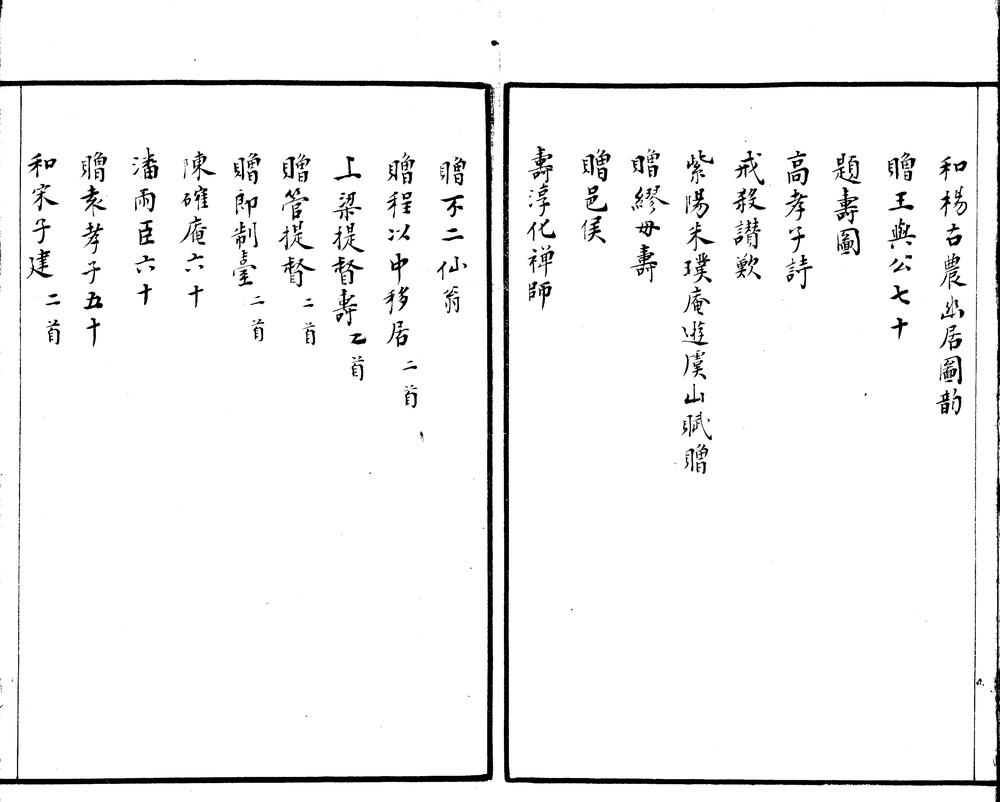 和楊古農幽居圖韵
贈王與公七十
題壽圖
高孝子詩
戒殺讃歎
紫陽朱璞庵遊虞山賦贈
贈繆母壽
贈邑侯
壽淳化禅師
贈不二仙翁
贈程以中移居二首
上梁提督壽乙首
贈管提督二首
贈郎制臺二首
陳確庵六十
潘雨臣六十
贈袁孝子五十
和宋子建二首